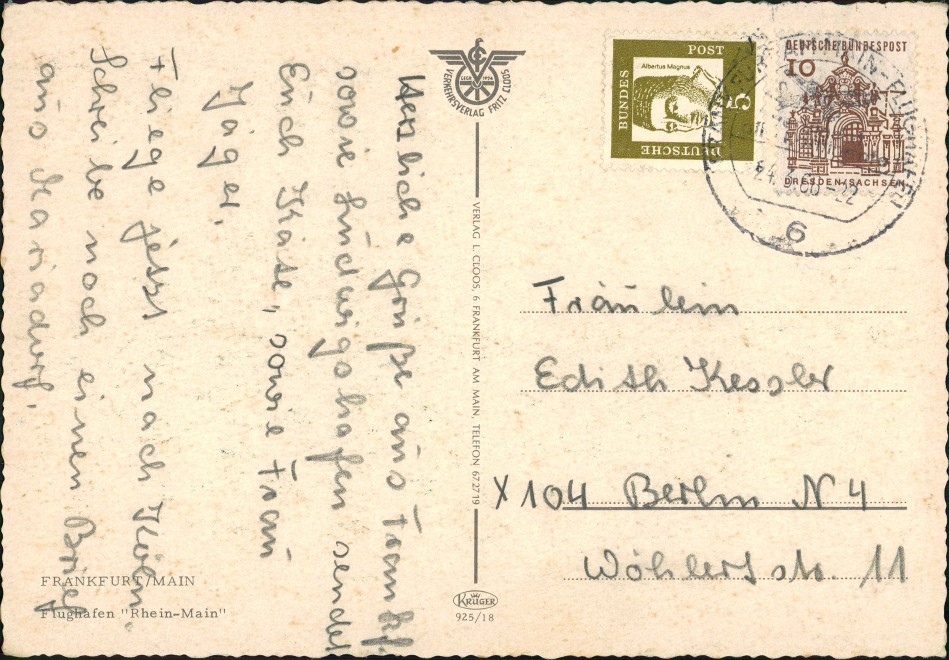 Herzliche Grüße aus Frankf.
sowie Ludwigshafen sendet
Euch Käse, sowie Frau
Jäger.
Fliege jetzt nach Köln.
Schreibe noch einen Brief
aus Mariadorf.
FRANKFURT/MAIN
Flughafen "Rhein-Main"
VERKEHRSVERLAG FRITZ CLOOS
VERLAG L. CLOOS, 6 FRANKFURT AM MAIN, TELEFON 672719
KRÜGER
925/18
DEUTSCHE BUNDESPOST
Albertus Magnus
5
DEUTSCHE BUNDESPOST
10
DRESDEN/SACHSEN
FLUGHAFEN
-22
6
Fräulein
Edith Kessler
X 104 Berlin N 4
Wöhlertstr. 11